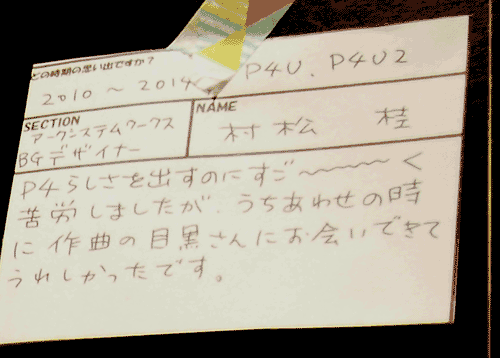 どの時期の思い出ですか?
2010 ~ 2014
P4U、P4U2
SECTION
アークシステムワークス
BGデザイナー
NAME
村松 桂
P4らしさを出すのにすご〜〜〜〜く
苦労しましたが、うちあわせの時
に作曲の目黒さんにお会いできて
うれしかったです。